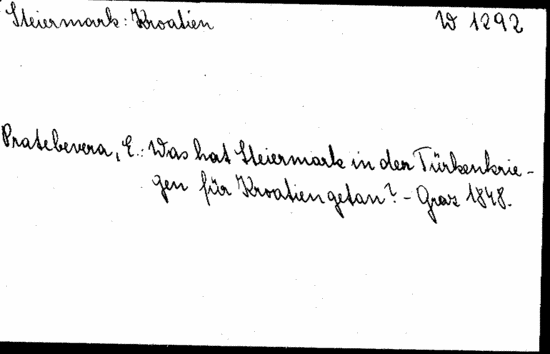 Steiermark: Kroatien
W 1292
Pratebevera, E.: Was hat Steiermark in der Türkenkrie-
gen für Kroatien getan? - Graz 1848.